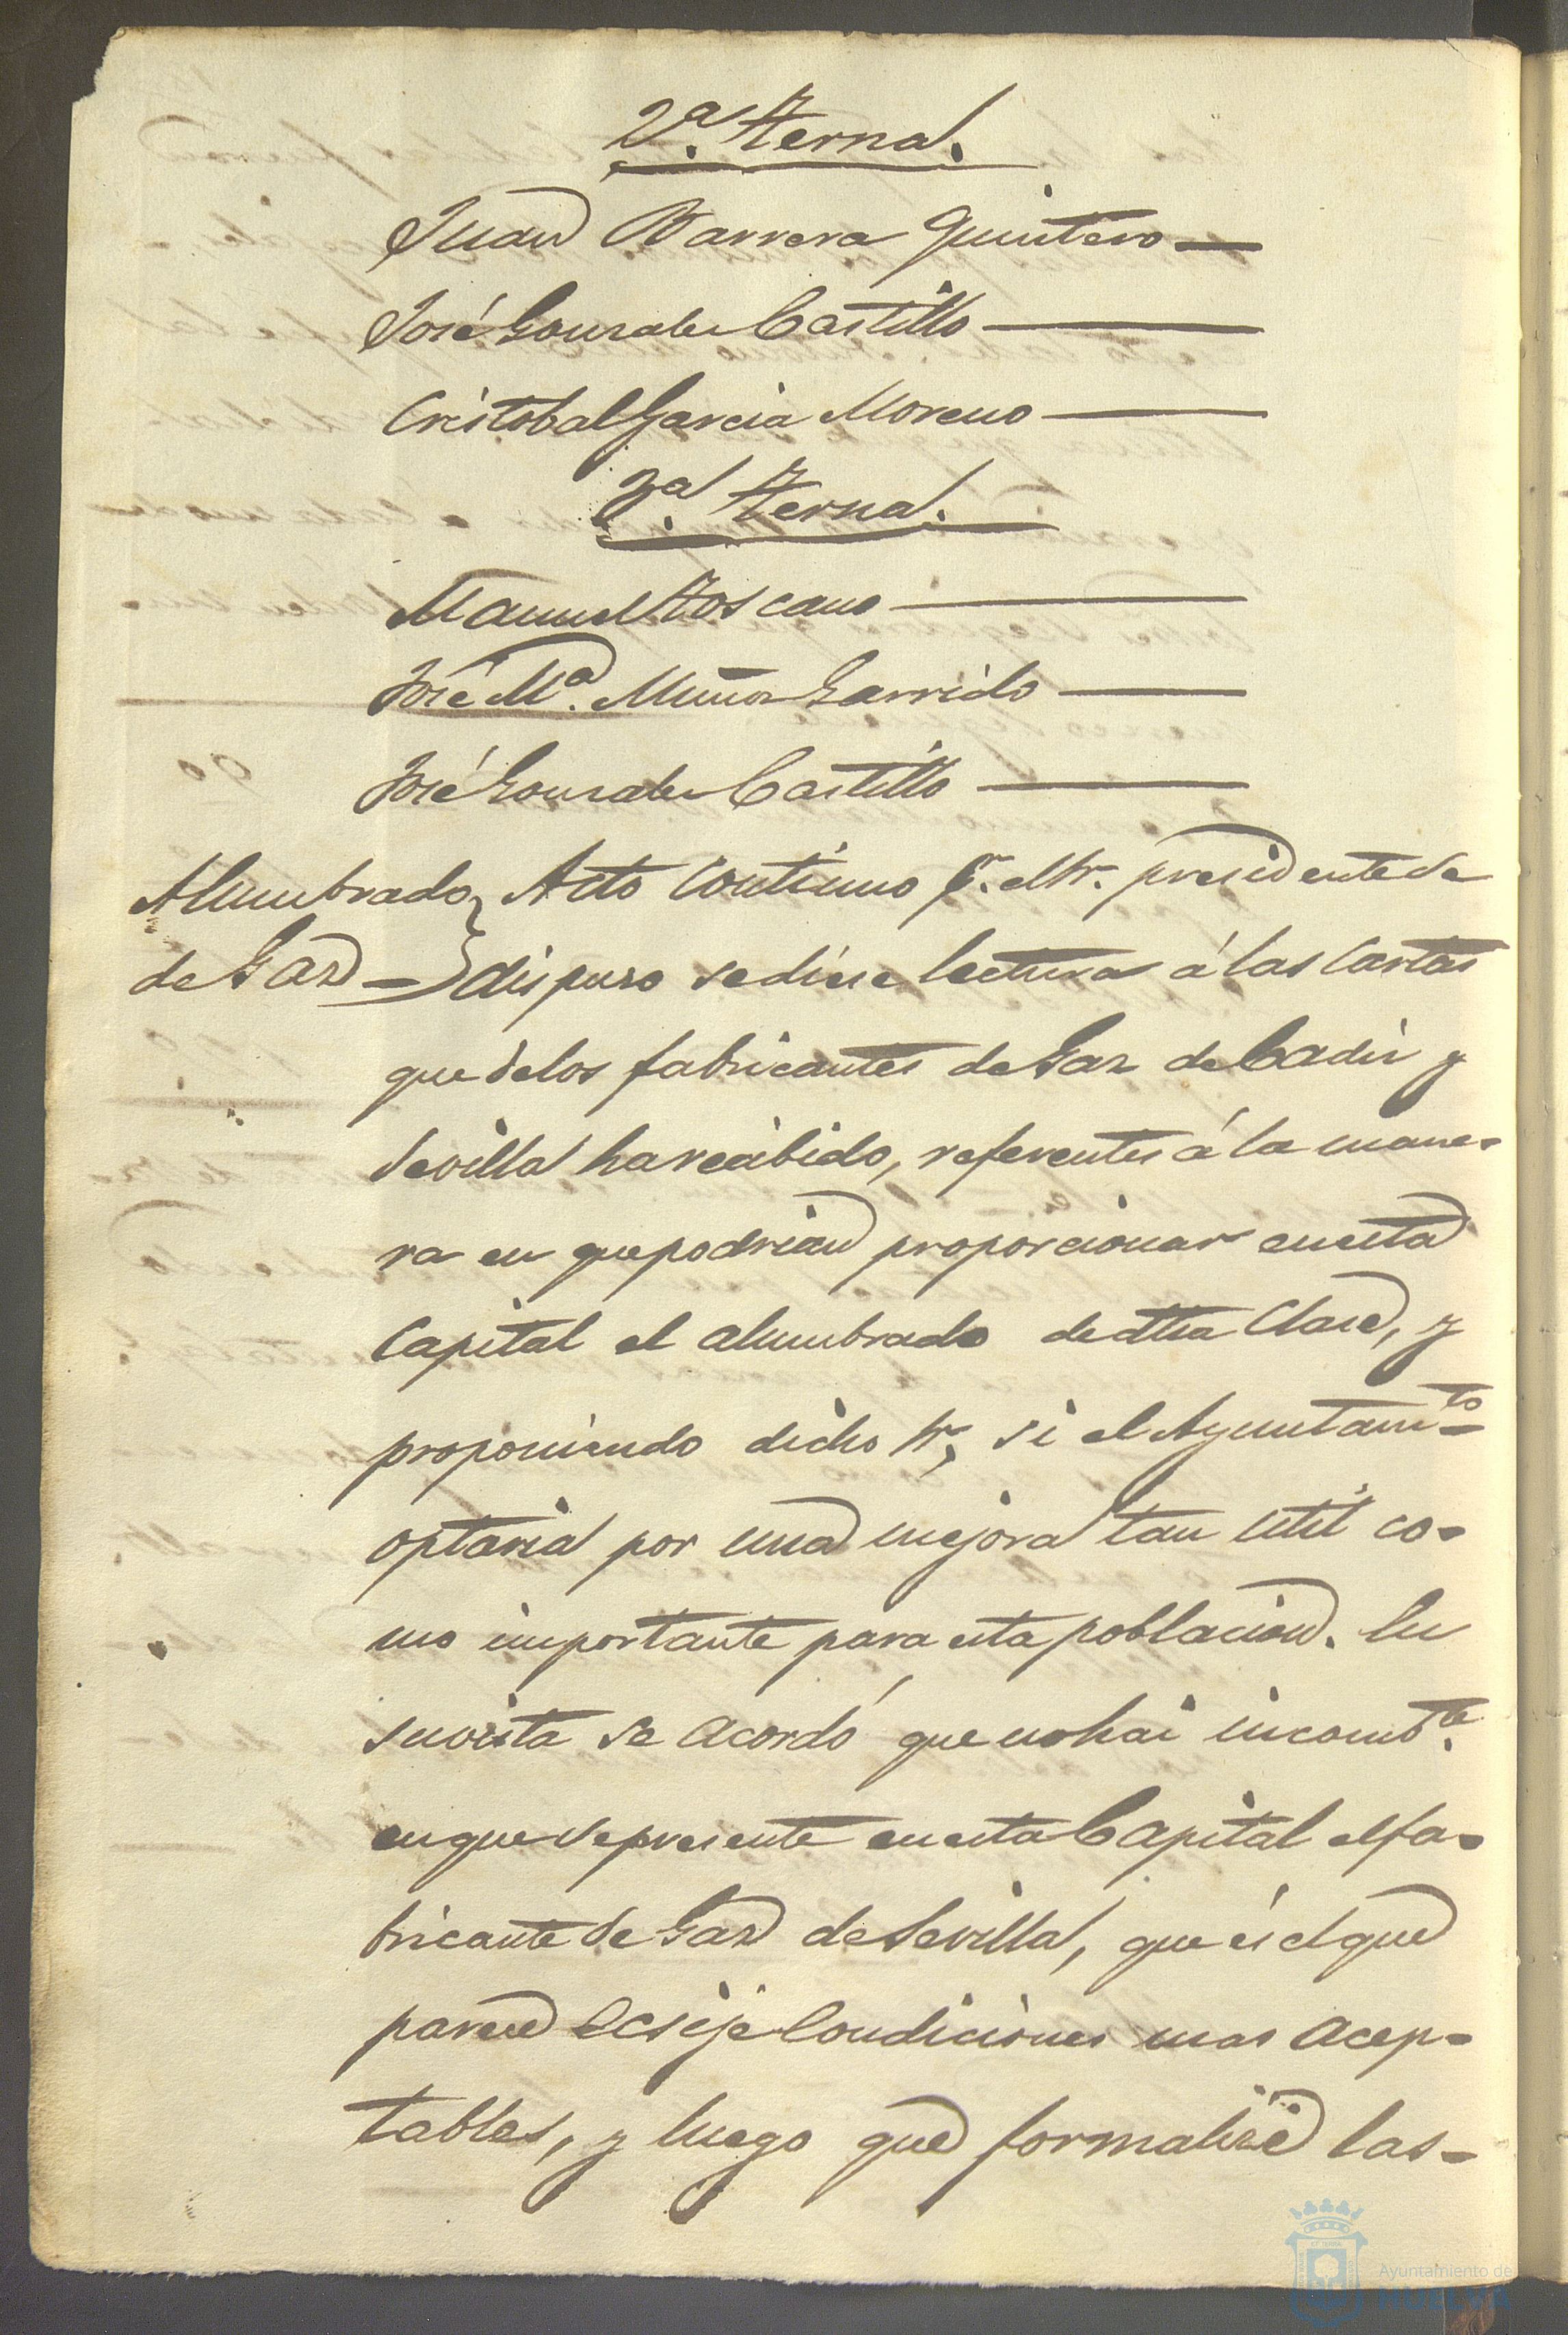 2ª. Terna.
Juan Barrera Quintero
José Gonzalez Castillo
Cristobal Garcia Moreno
3ª. Terna.
Manuel Toscano
José Mª. Muñoz Garrido
José Gonzalez Castillo
Alumbrado de Gaz
Acto continuo pr. el Sr. presidente se
dispuso se diese lectura á las cartas
que de los fabricantes de Gaz de Cadiz y
Sevilla ha recibido, referentes á la mane-
ra en que podrian proporcionar en esta
Capital el alumbrado de dtha Clase, y
proponiendo dicho Sr, si el Ayuntamto
optaria por una mejora tan util co-
mo importante para esta poblacion. En
su vista se acordó que no hai incombte.
en que se presente en esta Capital el fa-
bricante de Gaz de Sevilla, que és el que
parece ecsije Condiciones mas acep-
tables, y luego que formalize las-
Ayuntamiento de
HUELVA